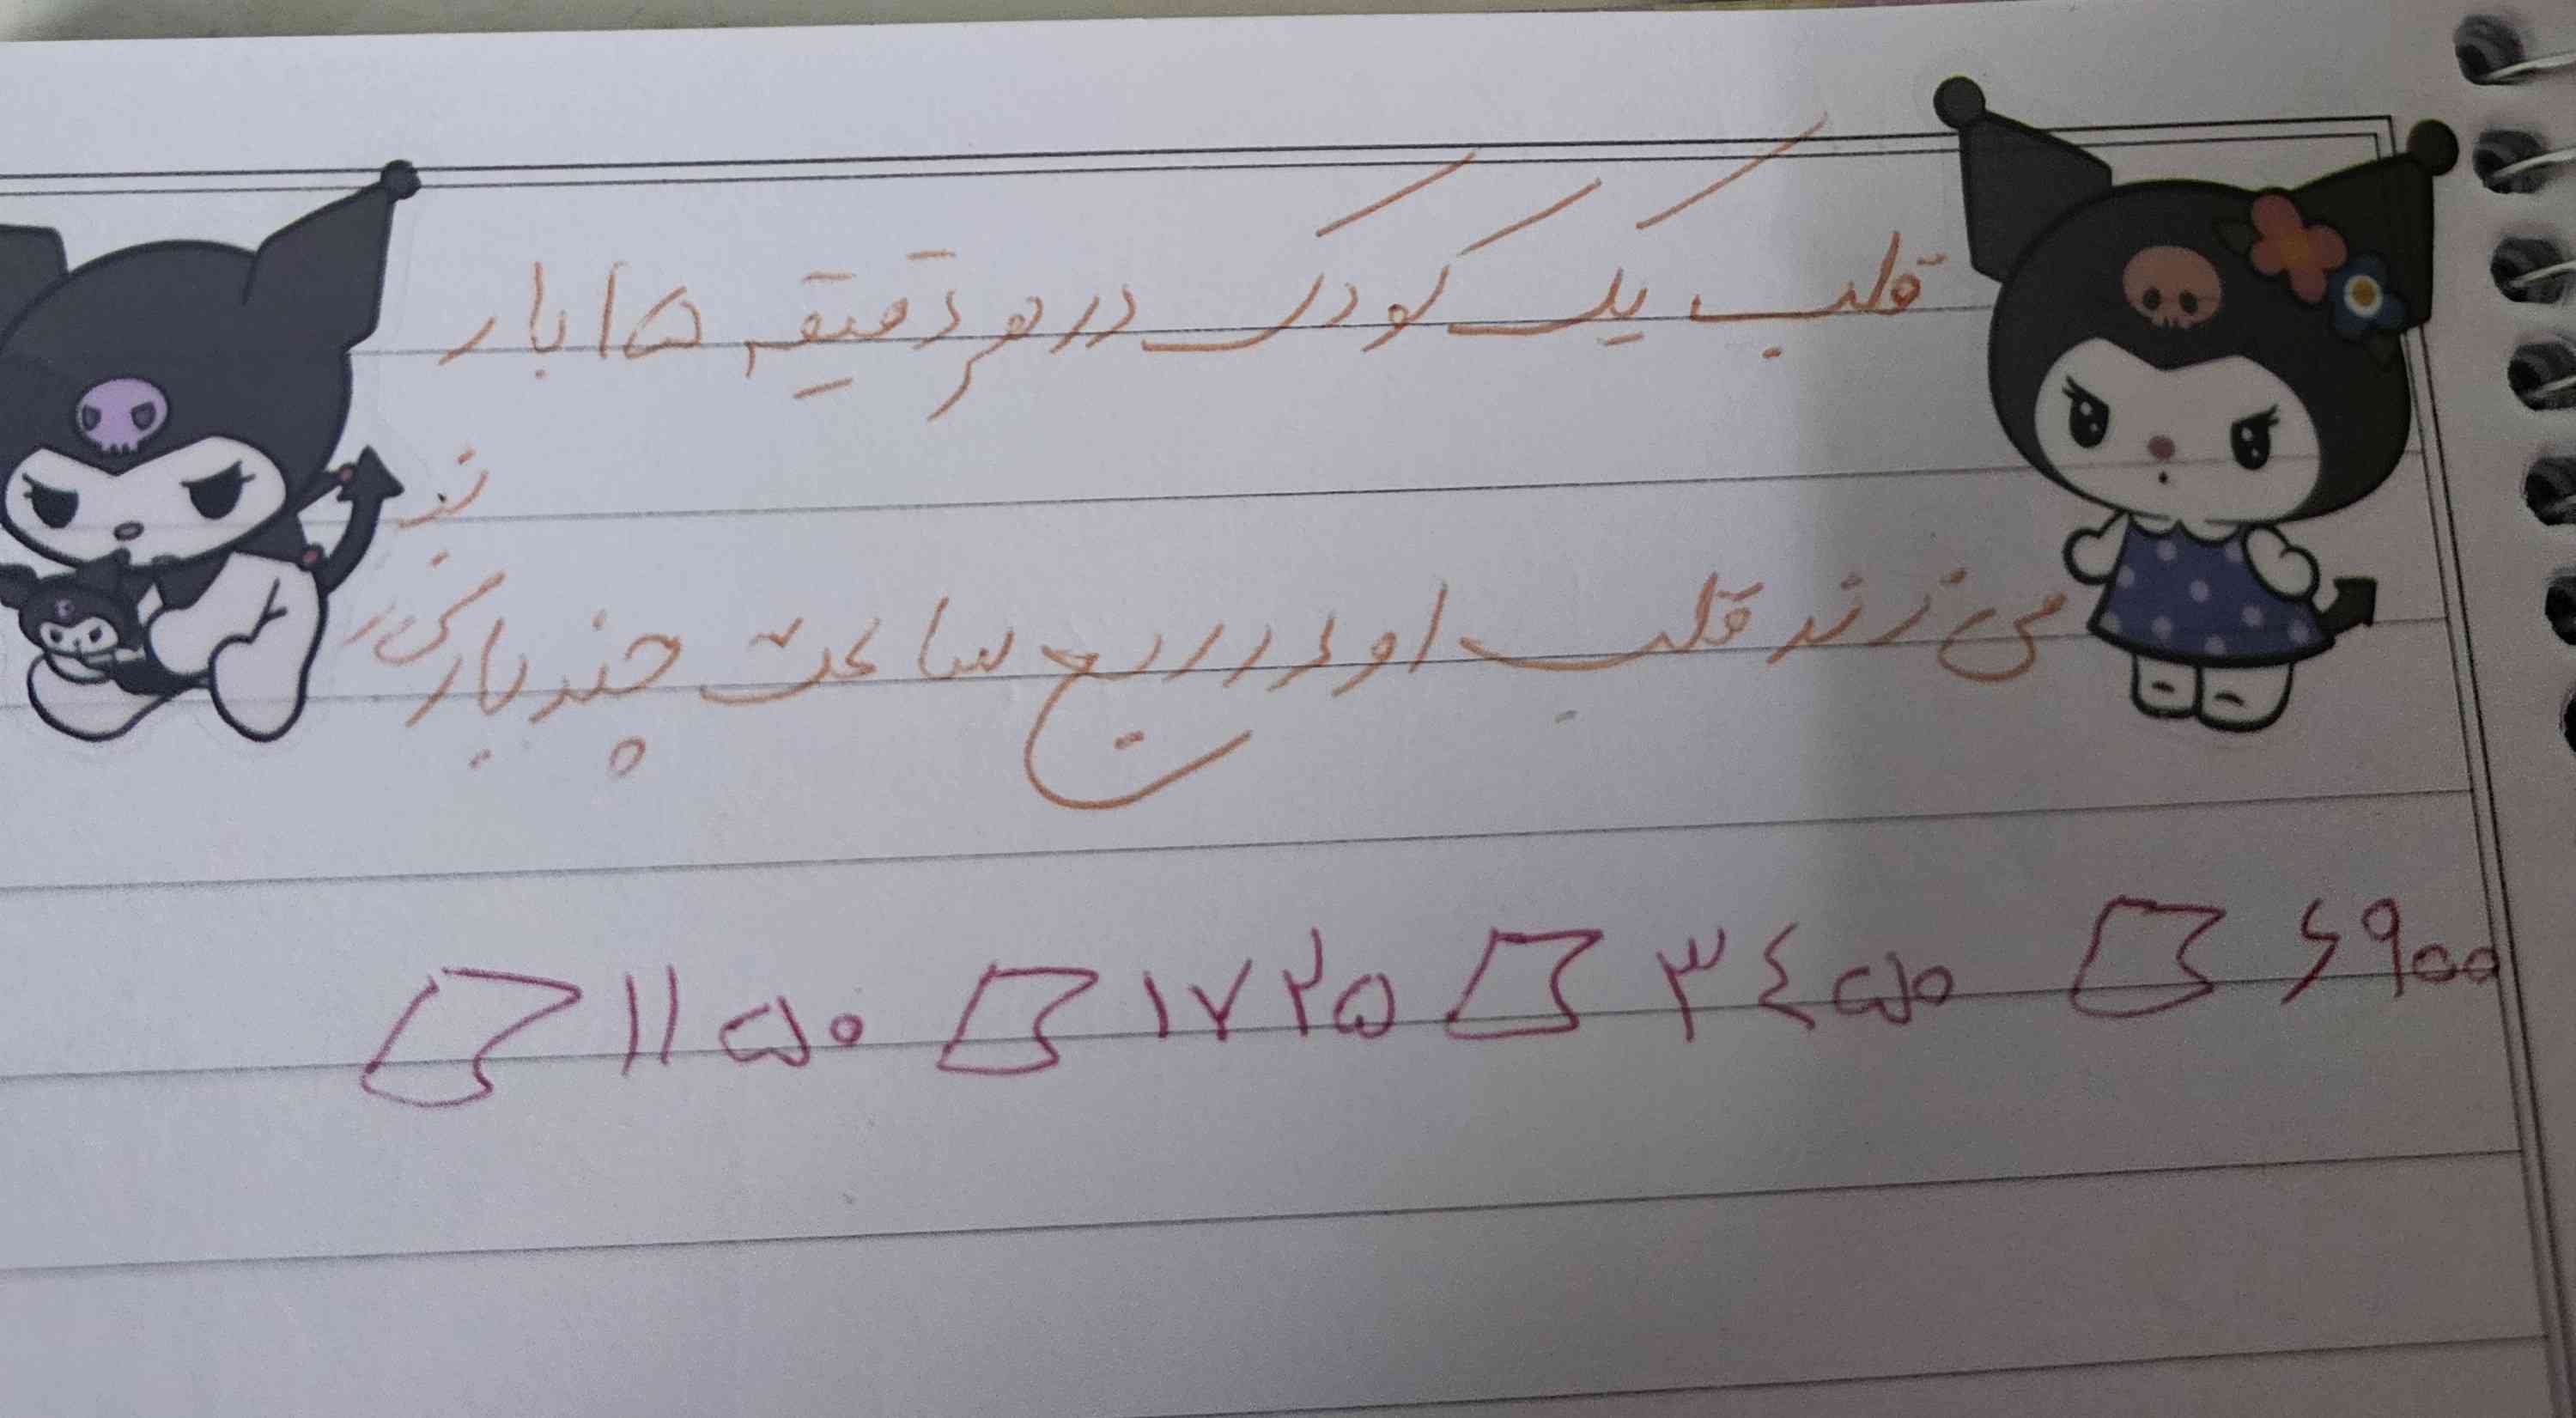 قلب یک کودک در هر دقیقه ۱۵ بار
می زند قلب او در ربع ساعت چند بار می زند
۱۱۵۰ ۱۷۲۵ ۳۴۵۰ ۶۹۰۰